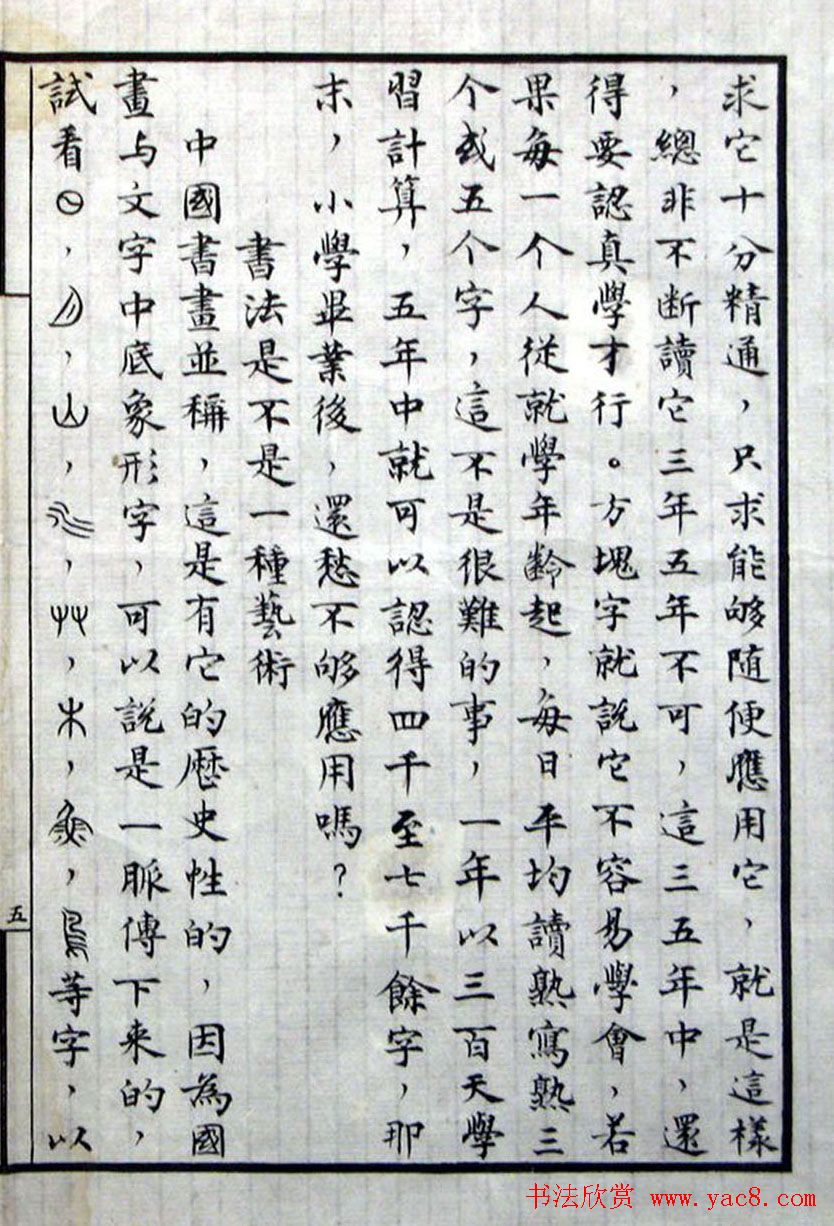 求它十分精通，只求能够随便應用它，就是這樣
，總非不断讀它三年五年不可，這三五年中，還
得要認真學才行。方塊字就説它不容易學會，若
果每一个人從就學年齡起，每日平均讀熟寫熟三
个或五个字，這不是很難的事，一年以三百天學
習計算，五年中就可以認得四千至七千餘字，那
末，小學畢業後，還愁不够應用嗎？
書法是不是一種藝術
中國書畫並稱，這是有它的歷史性的，因為國
畫与文字中底象形字，可以説是一脈傳下来的，
試看，，山，，艸，木，，等字，以
五
书法欣赏 www.yac8.com